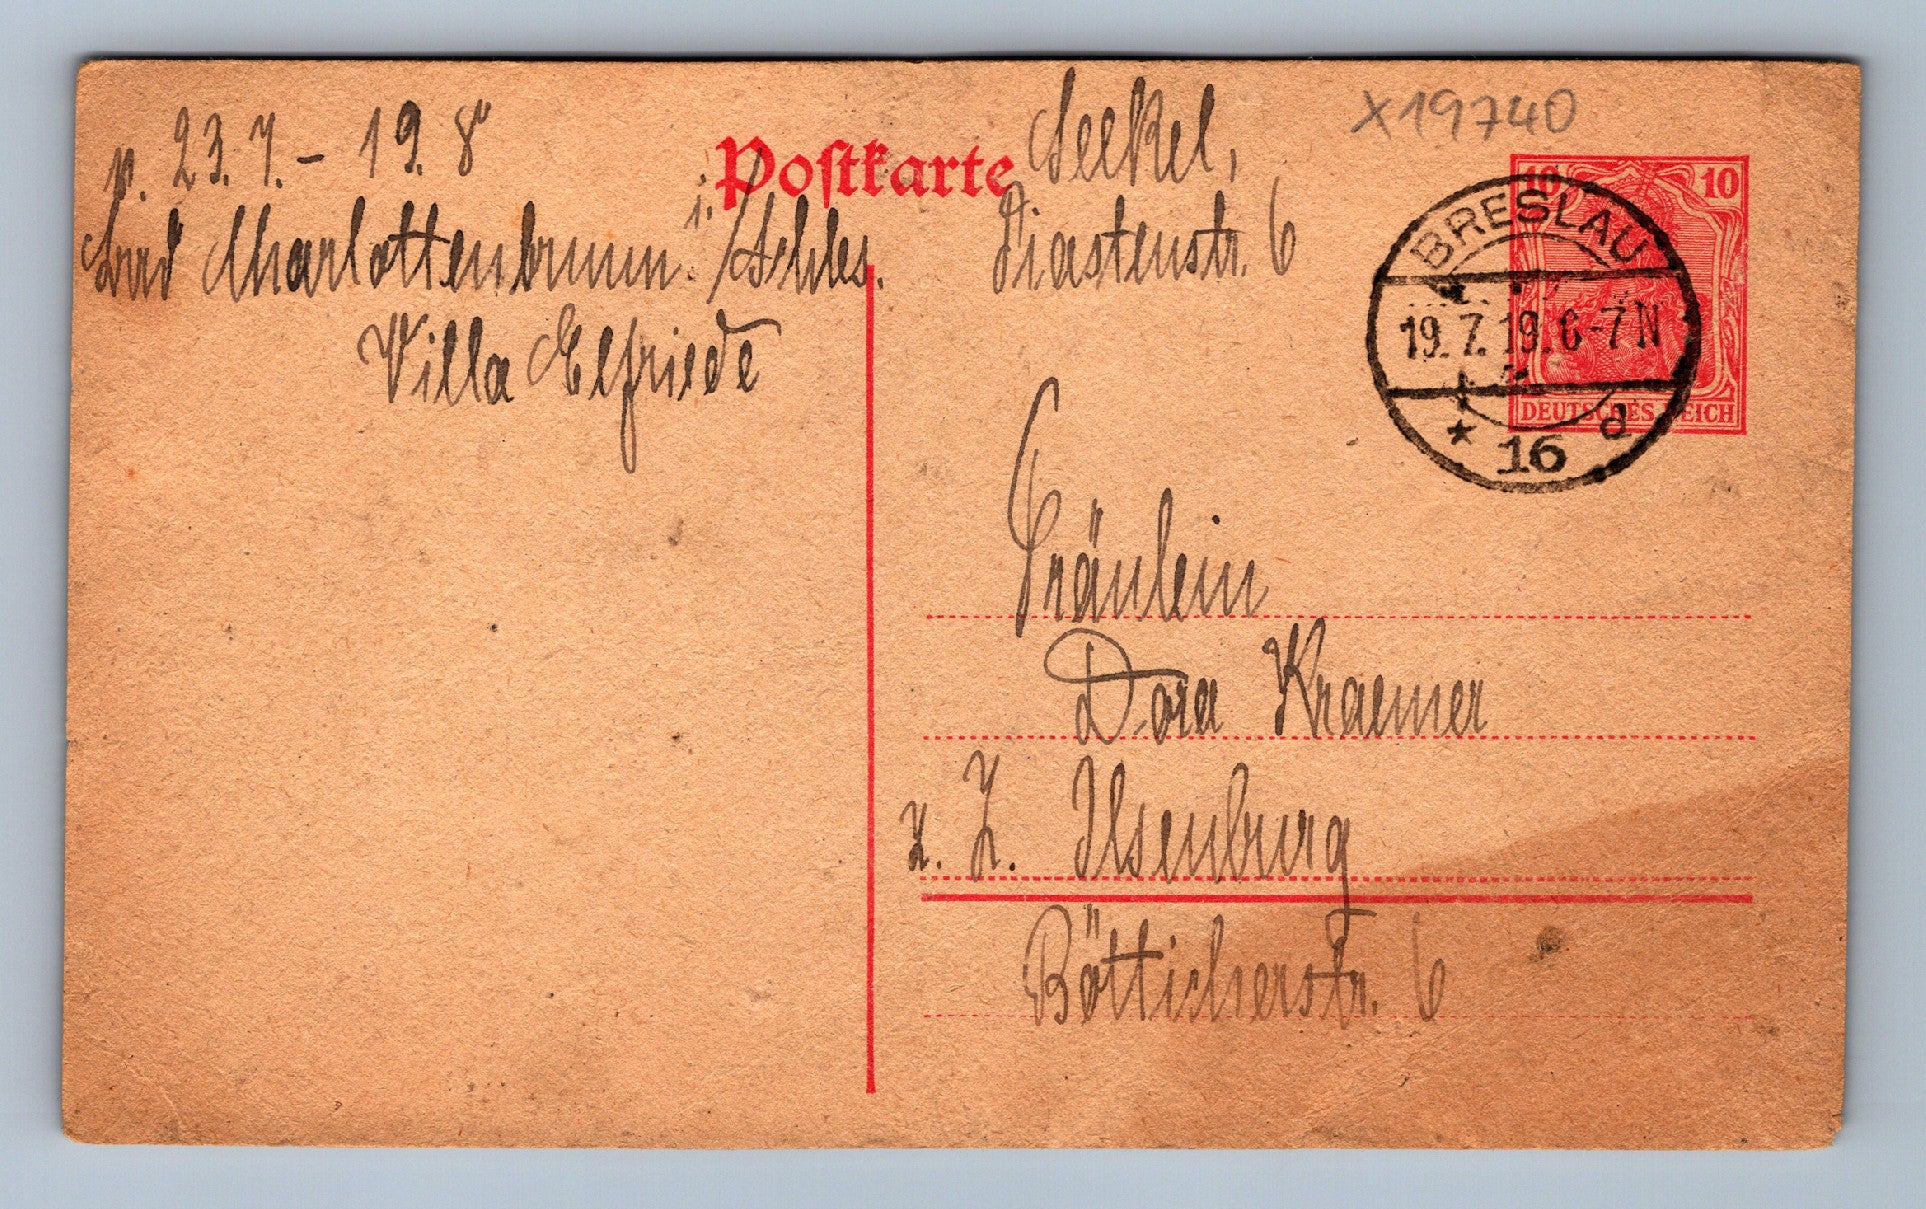 v. 23.7. – 19. 8.
Bad Charlottenbrunn i. Schles.
Villa Elfriede
Postkarte
Seekel,
Piastenstr. 6
X19740
10 10
DEUTSCHES REICH
BRESLAU
19.7.19.6-7N
* 16 d
Fräulein
Dora Kraemer
z. Z. Ilsenburg
Bötticherstr. 6